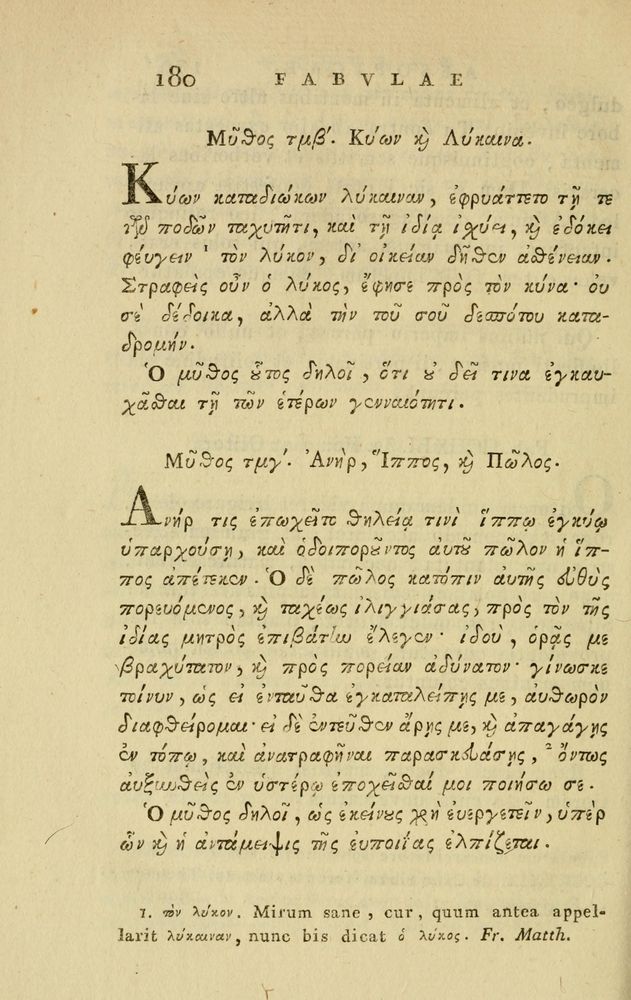 180 FABVLAE
Μῦθος τμβ'. Κύων καὶ Λύκαινα.
Κύων καταδιώκων λύκαιναν, ἐφρυάττετο τῇ τε
τῶν ποδῶν ταχυτῆτι, καὶ τῇ ἰδίᾳ ἰσχύει, καὶ ἐδόκει
φεύγειν ¹ τὸν λύκον, δι' οἰκείαν δῆθεν ἀσθένειαν.
Στραφεὶς οὖν ὁ λύκος, ἔφησε πρὸς τὸν κύνα· οὐ
σὲ δέδοικα, ἀλλὰ τὴν τοῦ σοῦ δεσπότου κατα-
δρομήν.
Ὁ μῦθος οὗτος δηλοῖ, ὅτι οὐ δεῖ τινα ἐγκαυ-
χᾶσθαι τῇ τῶν ἑτέρων γενναιότητι.
Μῦθος τμγ'. Ἀνὴρ, Ἵππος, καὶ Πῶλος.
Ἀνήρ τις ἐπωχεῖτο θηλείᾳ τινὶ ἵππῳ ἐγκύῳ
ὑπαρχούσῃ, καὶ ὁδοιποροῦντος αὐτοῦ πῶλον ἡ ἵπ-
πος ἀπέτεκεν. Ὁ δὲ πῶλος κατόπιν αὐτῆς εὐθὺς
πορευόμενος, καὶ ταχέως ἰλιγγιάσας, πρὸς τὸν τῆς
ἰδίας μητρὸς ἐπιβάτην ἔλεγεν· ἰδοὺ, ὁρᾷς με
βραχύτατον, καὶ πρὸς πορείαν ἀδύνατον· γίνωσκε
τοίνυν, ὡς εἰ ἐνταῦθα ἐγκαταλείπῃς με, αὐθωρὸν
διαφθείρομαι· εἰ δὲ ἐντεῦθεν ἄρῃς με, καὶ ἀπαγάγῃς
ἐν τόπῳ, καὶ ἀνατραφῆναι παρασκευάσῃς, ² ὄντως
αὐξηθεὶς ἐν ὑστέρῳ ἐποχεῖσθαί μοι ποιήσω σε.
Ὁ μῦθος δηλοῖ, ὡς ἐκείνους χρὴ εὐεργετεῖν, ὑπὲρ
ὧν καὶ ἡ ἀντάμειψις τῆς εὐποιΐας ἐλπίζεται.
1. τὸν λύκον. Mirum sane, cur, quum antea appel-
larit λύκαιναν, nunc bis dicat ὁ λύκος. Fr. Matth.